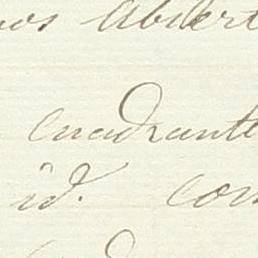 os Abiert
cuadrante
id. con